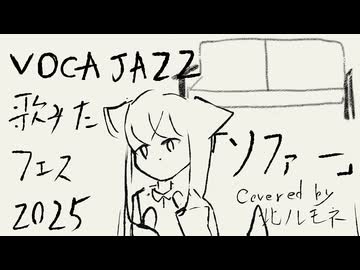 VOCA JAZZ
歌みた
フェス
2025
「ソファー」
Covered by
北ルモネ